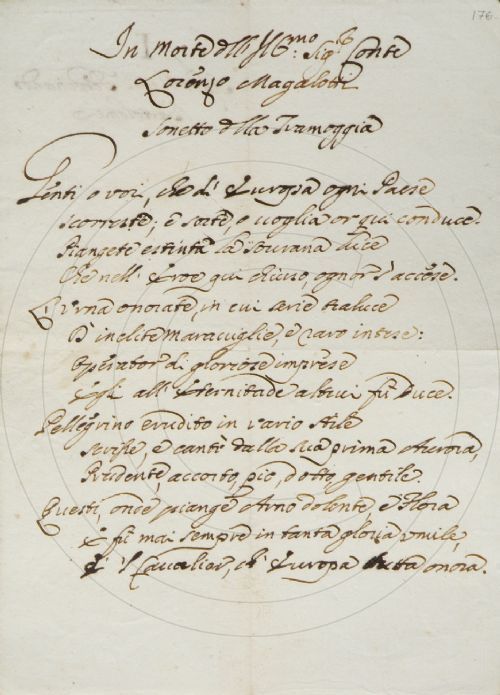 176
In Morte dell' Ill.mo: Sig.r Conte
Lorenzo Magalotti
Sonetto della Tramoggia
Genti o voi, che d' Europa ogni Paese
scorreste; è sorte, o voglia or qui conduce.
Piangete estinta la sovrana luce
Che nell' Eroe qui chiuso, ognor s' accese.
L' Urna onorate, in cui serie traluce
D' inclite maraviglie, e raro intese:
Operator di gloriose imprese
Egli all' Eternitade altrui fù Duce.
Pellegrino erudito in vario stile
scrisse, e cantò dalla sua prima Aurora,
Prudente, accorto, pio, dotto, gentile.
Questi, onde piange Arno dolente, e Flora
E fù mai sempre in tanta gloria umile,
È 'l Cavalier, ch' Europa tutta onora.